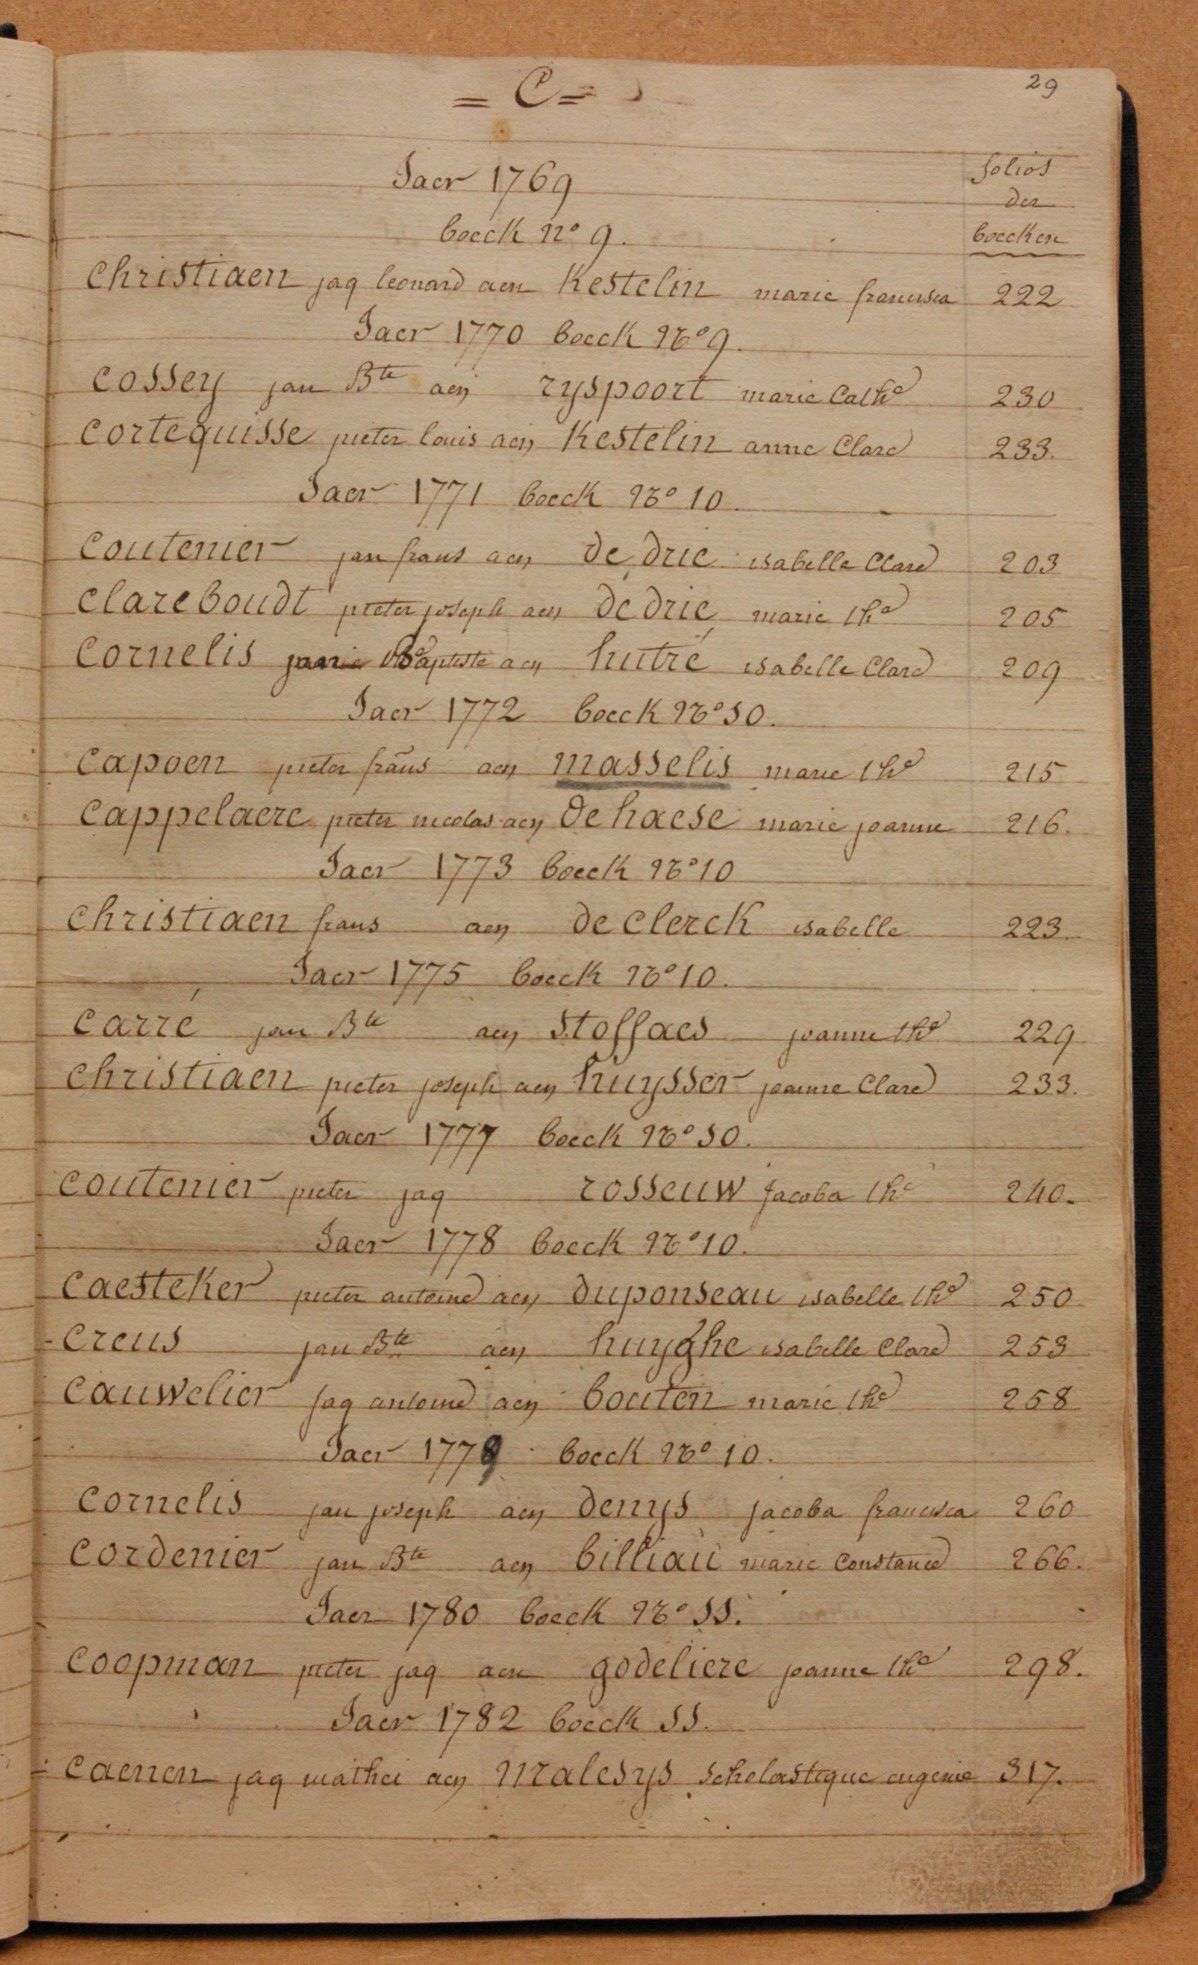 29
= C =
folios
der
boecken
Jaer 1769
boeck n° 9.
Christiaen jaq leonard aen Kestelin marie francisca 222
Jaer 1770 boeck N° 9.
Cossey jan Bte aen ryspoort marie Cathe 230
Cortequisse pieter louis aen Kestelin anne Clare 233.
Jaer 1771 boeck N° 10.
Coutenier jan frans aen de drie isabelle Clare 203
Clareboudt pieter joseph aen de drie marie the 205
Cornelis Baptiste aen hutré isabelle Clare 209
Jaer 1772 boeck N° 10.
Capoen pieter frans aen masselis marie the 215
Cappelaere pieter nicolas aen de haese marie joanne 216.
Jaer 1773 boeck N° 10
Christiaen frans aen de Clerck isabelle 223
Jaer 1775 boeck N° 10.
Carré jan Bte aen Stoffaes joanne the 229
Christiaen pieter joseph aen huysser joanne Clare 233.
Jaer 1777 boeck N° 10.
Coutenier pieter jaq rosseuw Jacoba the 240.
Jaer 1778 boeck N° 10.
Caesteker pieter antoine aen duponseau isabelle the 250
- Creus jan Bte aen huyghe isabelle Clare 253
Cauwelier Jaq antoine aen bouten marie the 258
Jaer 1779 boeck N° 10.
Cornelis jan joseph aen denys jacoba francisca 260
Cordenier jan Bte aen billiau marie Constance 266.
Jaer 1780 boeck N° 11.
Coopman pieter jaq aen godeliere joanne the 298.
Jaer 1782 boeck 11.
- Caenen jaq mathei aen Malesys scholastique eugenie 317.